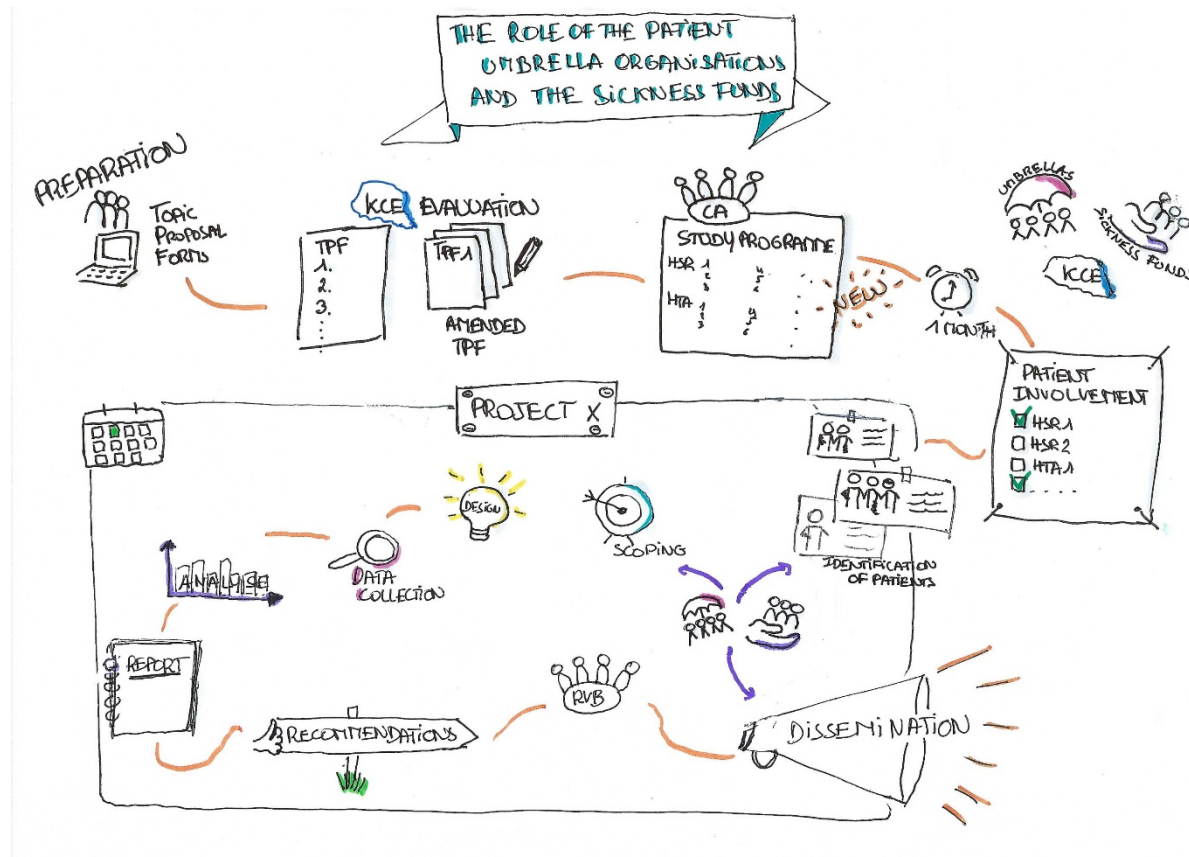 THE ROLE OF THE PATIENT
UMBRELLA ORGANISATIONS
AND THE SICKNESS FUNDS
PREPARATION
TOPIC
PROPOSAL
FORMS
KCE EVALUATION
TPF
1.
2.
3.
TPF1
AMENDED
TPF
CA
STUDY PROGRAMME
HSR 1
2
3
HTA 1
2
3
NEW
1 MONTH
UMBRELLAS
SICKNESS FUNDS
KCE
PATIENT
INVOLVEMENT
HSR1
HSR2
HTA1
.....
PROJECT X
IDENTIFICATION
OF PATIENTS
SCOPING
DESIGN
DATA
COLLECTION
ANALYSE
REPORT
RECOMMENDATIONS
RVB
DISSEMINATION